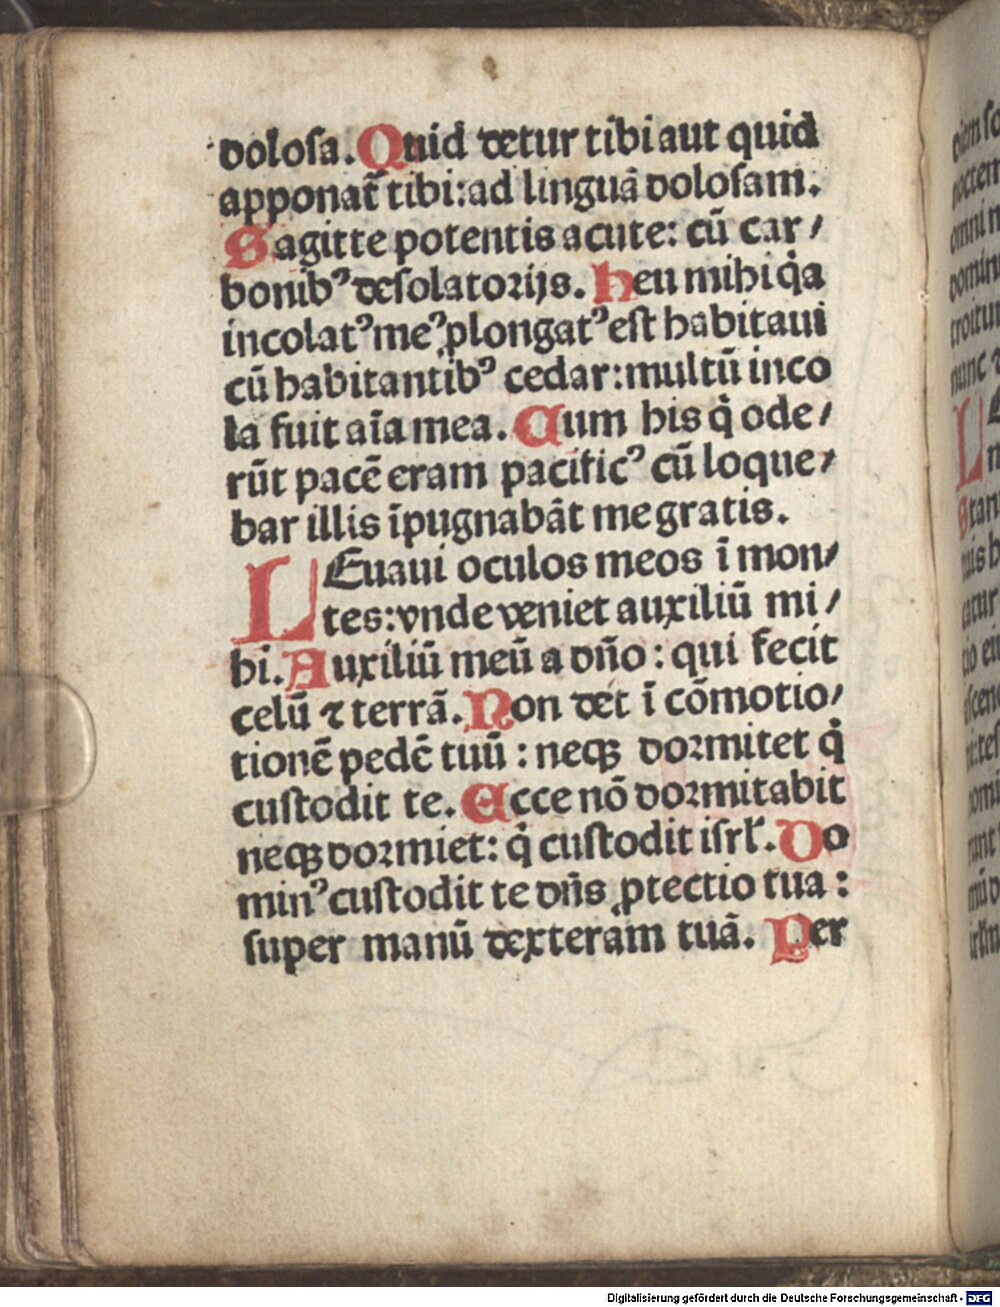 dolosa. Quid detur tibi aut quid
apponat̃ tibi: ad linguā dolosam.
Sagitte potentis acute: cū car/
bonibꝰ desolatorijs. Heu mihi q̇a
incolatꝰ meꝰ ꝓlongatꝰ est habitaui
cū habitantibꝰ cedar: multū inco
la fuit aīa mea. Cum his q̇ ode/
rūt pacē eram pacificꝰ cū loque/
bar illis īpugnabāt me gratis.
LEuaui oculos meos ī mon/
tes: vnde veniet auxiliū mi/
hi. Auxiliū meū a dño: qui fecit
celū ⁊ terrā. Non det ī cōmotio/
tionē pedē tuū: neqꝫ dormitet q̇
custodit te. Ecce nō dormitabit
neqꝫ dormiet: q̇ custodit isrl̄. Do
minꝰ custodit te dñs ꝓtectio tua:
super manū dexteram tuā. Per
diem so
noctem
omni m
domin
troitum
nunc ⁊
Stan
Digitalisierung gefördert durch die Deutsche Forschungsgemeinschaft - DFG